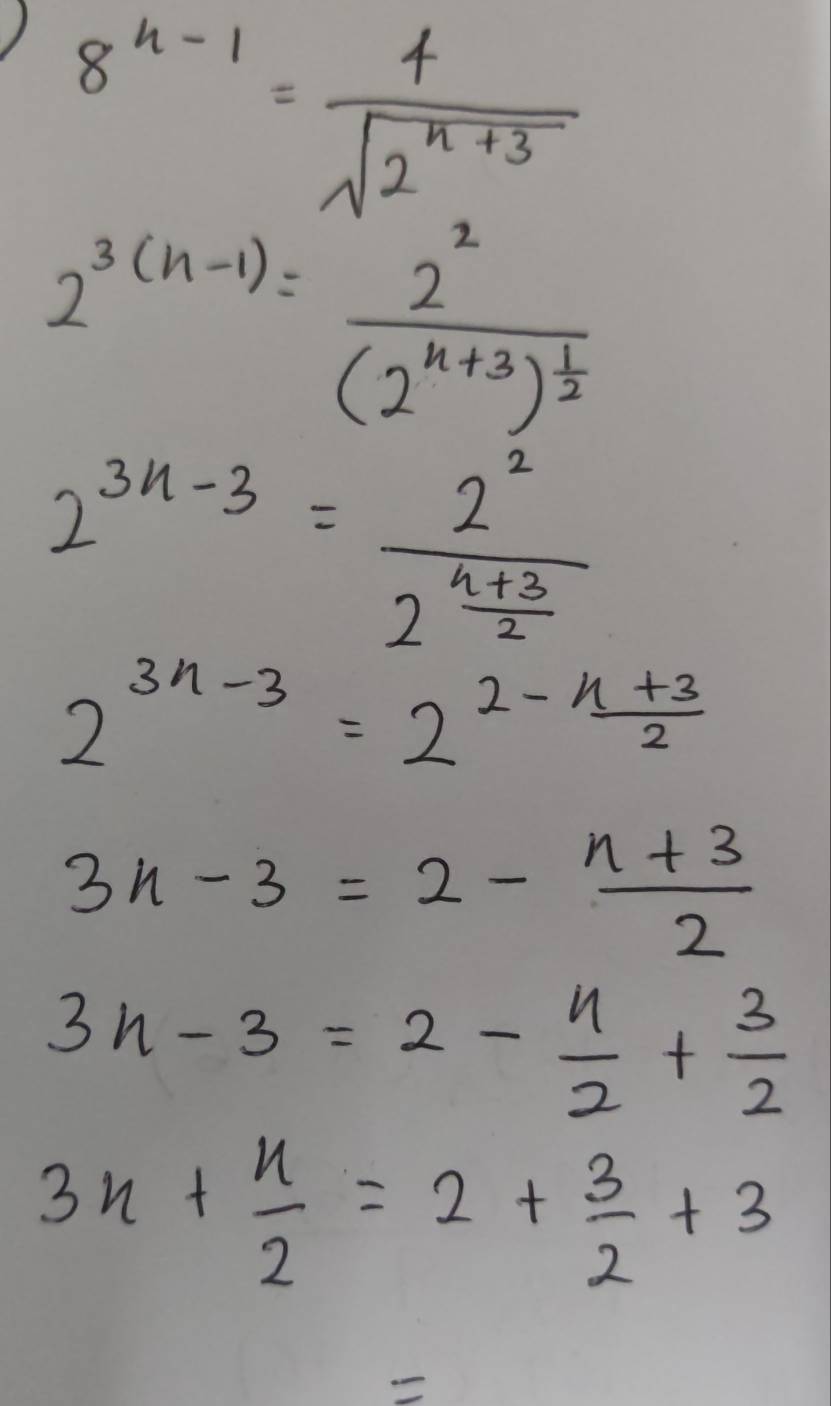 ) 8^{n-1} = \frac{4}{\sqrt{2^{n+3}}}
2^{3(n-1)} = \frac{2^2}{(2^{n+3})^{\frac{1}{2}}}
2^{3n-3} = \frac{2^2}{2^{\frac{n+3}{2}}}
2^{3n-3} = 2^{2-\frac{n+3}{2}}
3n - 3 = 2 - \frac{n+3}{2}
3n - 3 = 2 - \frac{n}{2} + \frac{3}{2}
3n + \frac{n}{2} = 2 + \frac{3}{2} + 3
=